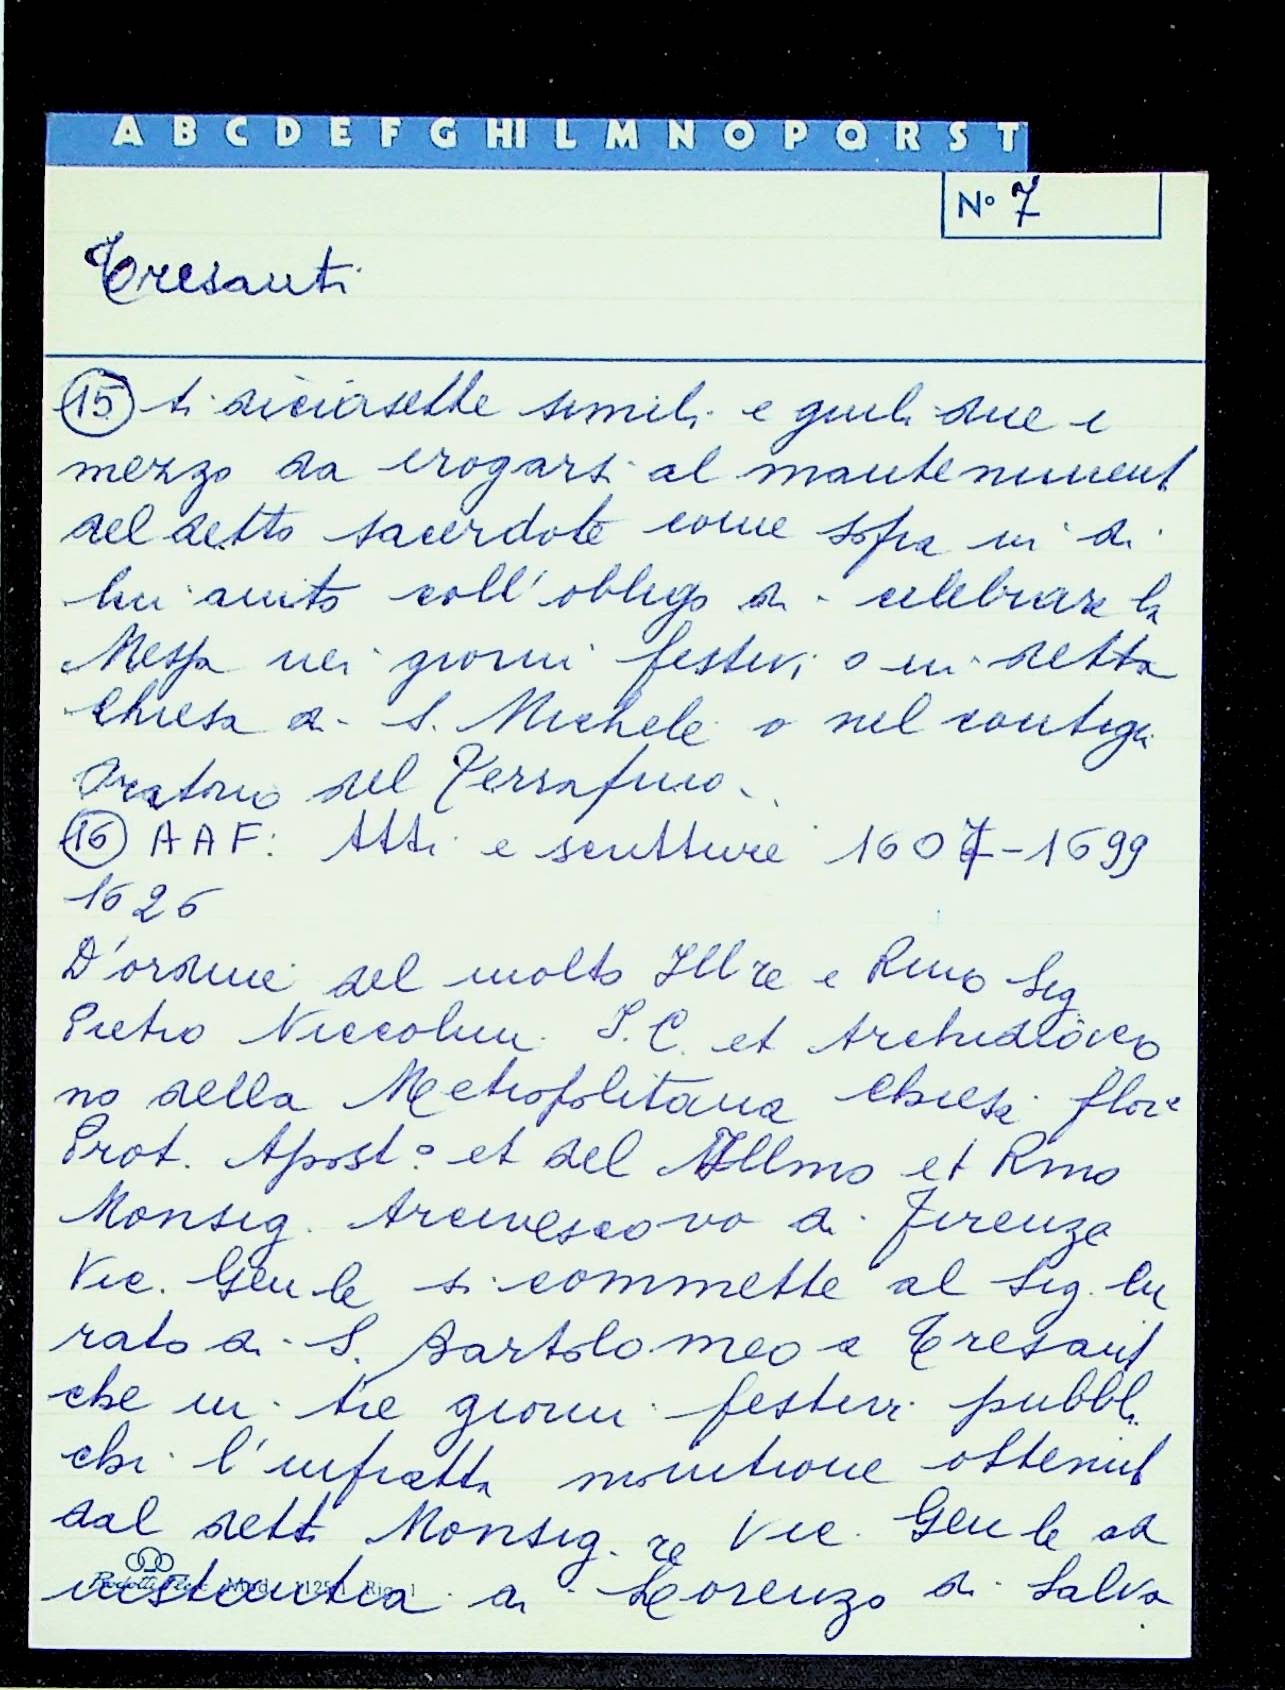 A B C D E F G HI L M N O P Q R S T
N° 7
Tresanti
(15) ti diciasette simili e giuli due e
mezzo da erogarsi al mantenimento
del detto sacerdote come sopra in di
lui aiuto coll'obbligo di celebrare la
Messa nei giorni festivi o in detta
Chiesa di S. Michele o nel contiguo
Oratorio del Terrafino.
(16) AAF: Atti e scritture 1607-1699
1626
D'ordine del molto Ill re e Rmo Sig
Pietro Niccolini I.C. et Archidiaco
no della Metropolitana Chiesa flore
Prot. Apost° et del Illmo et Rmo
Monsig. Arcivescovo di Firenze
Vic. Gen le si commette al Sig. Cu
rato di S. Bartolomeo a Tresanti
che in tre giorni festivi pubbli
chi l'infratta monitione ottenuta
dal detto Monsig. re Vic. Gen le ad
instantia di Lorenzo di Salva